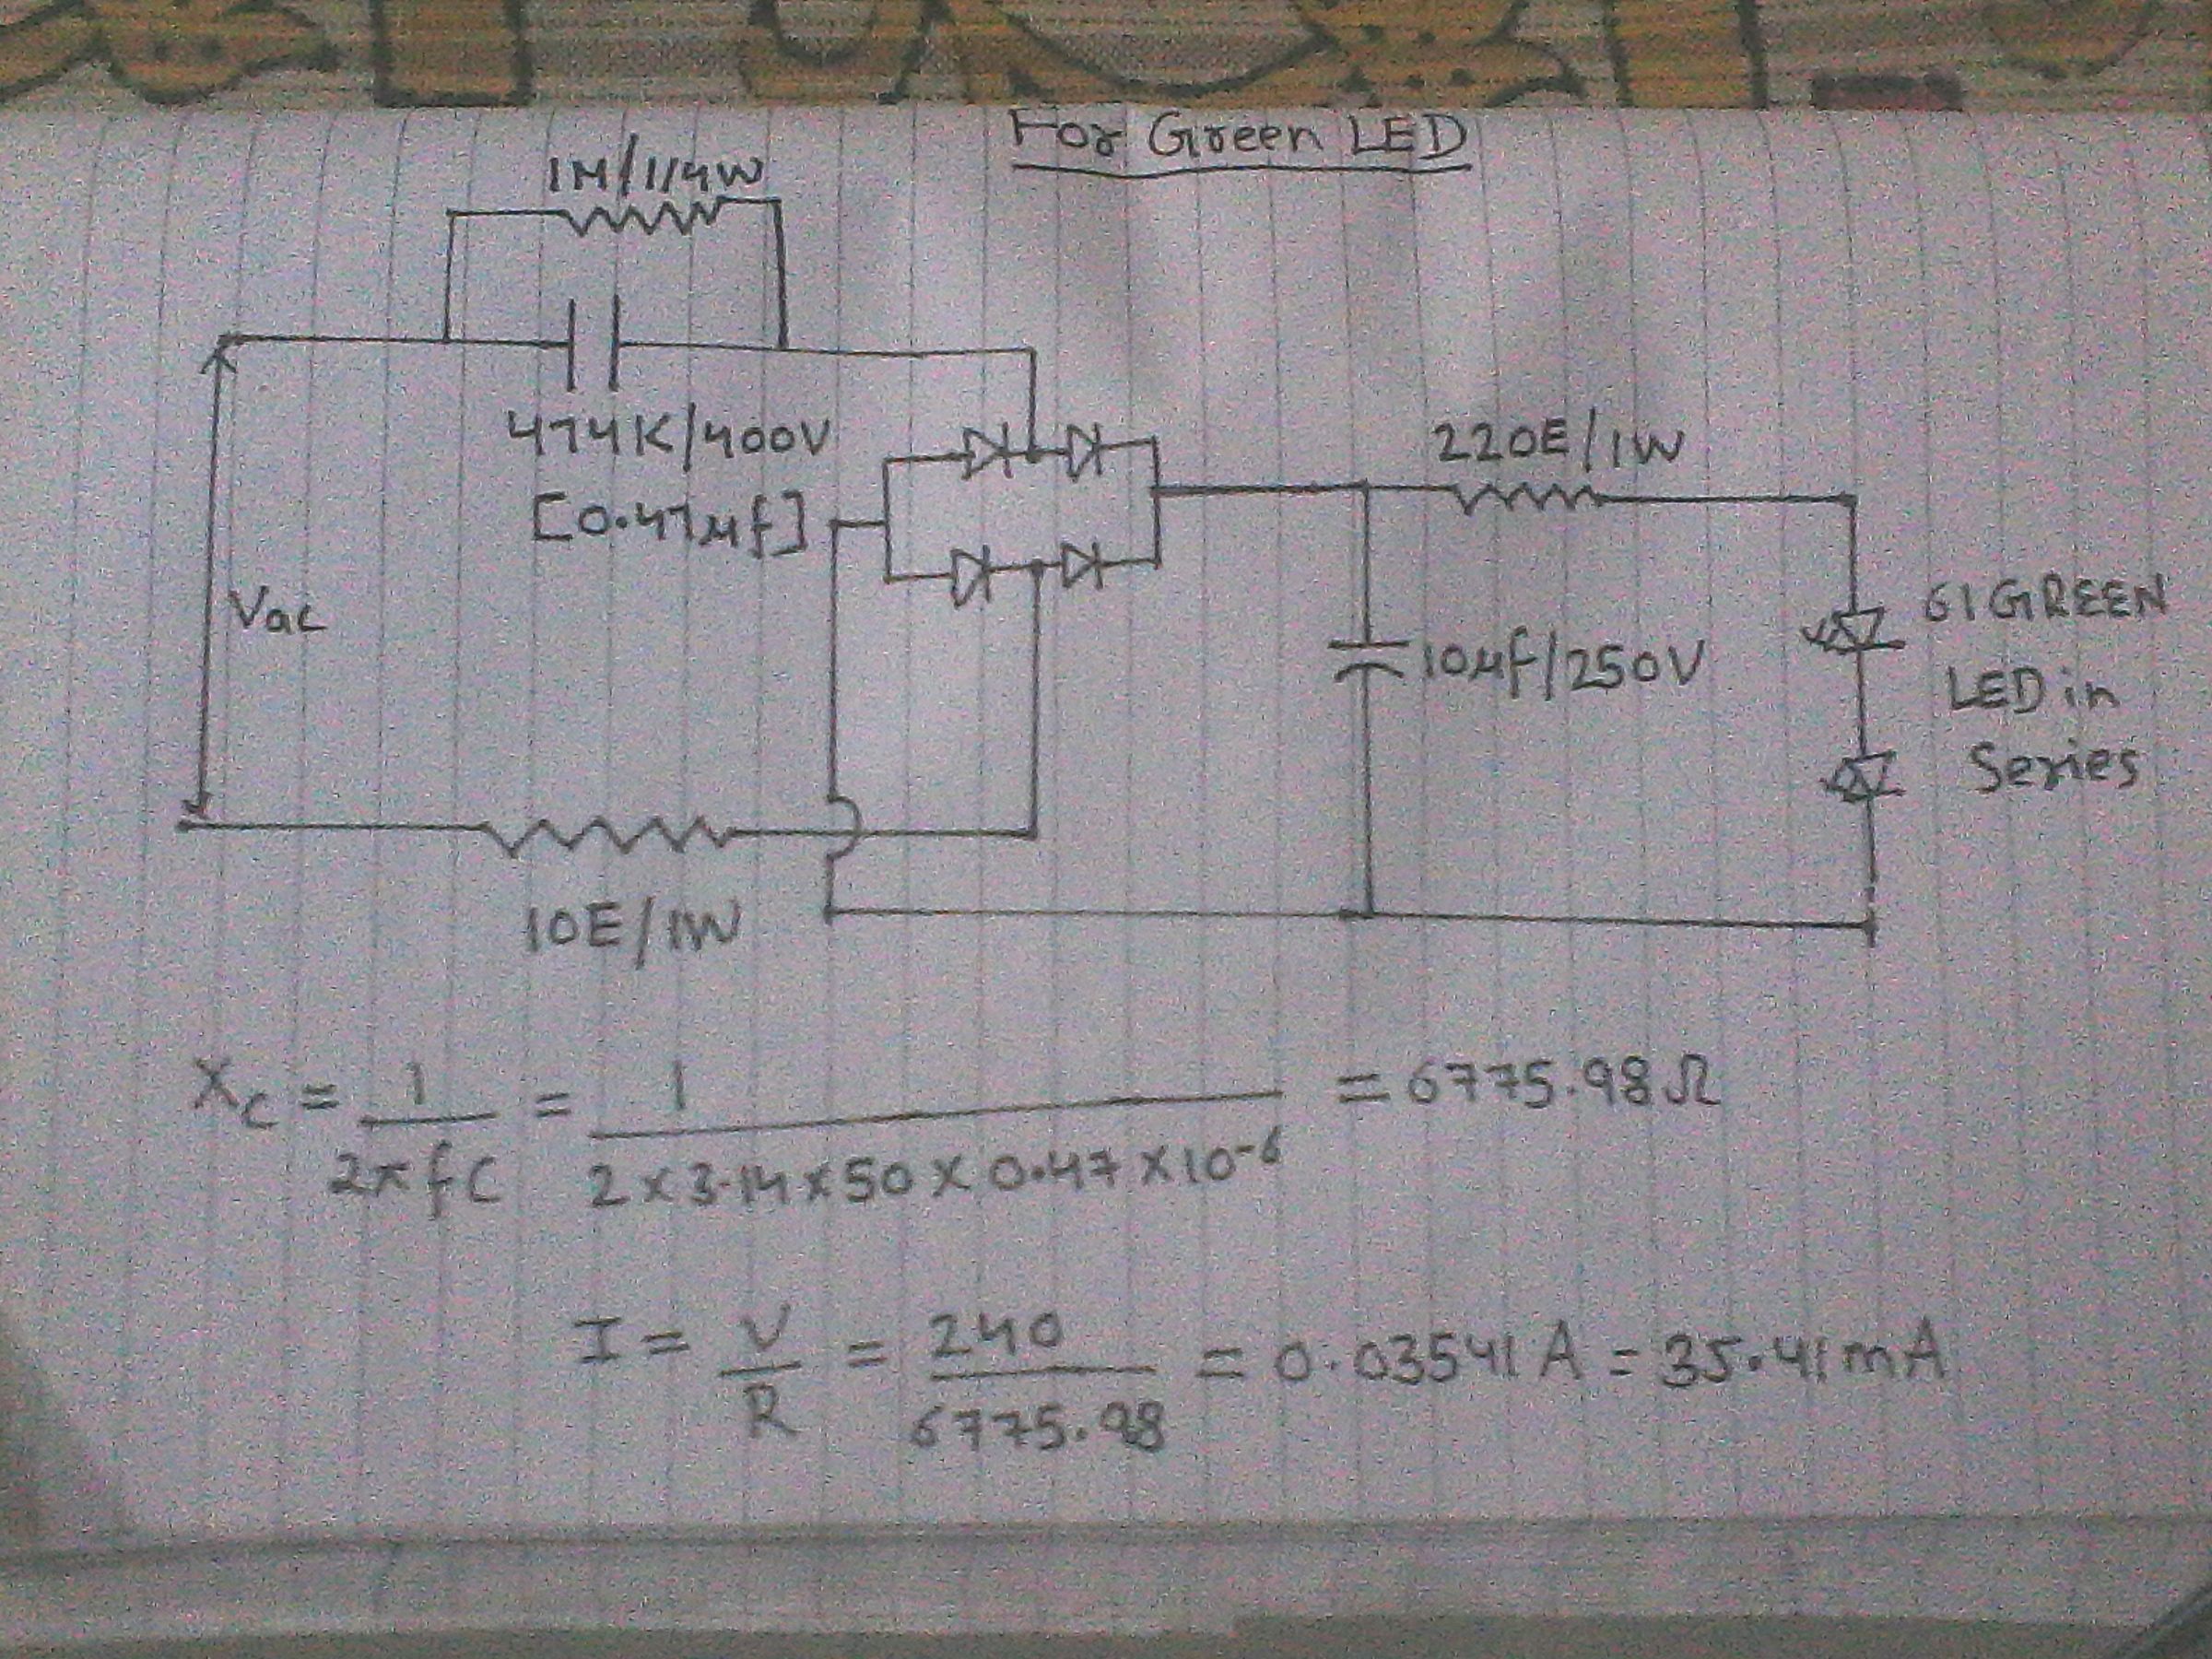 For Green LED
1M/1/4W
474K/400V
[0.47µf]
220E/1W
Vac
10µf/250V
61 GREEN
LED in
Series
10E/1W
Xc = 1/2πfC = 1/2x3.14x50x0.47x10⁻⁶ = 6775.98Ω
I = V/R = 240/6775.98 = 0.03541A = 35.41mA